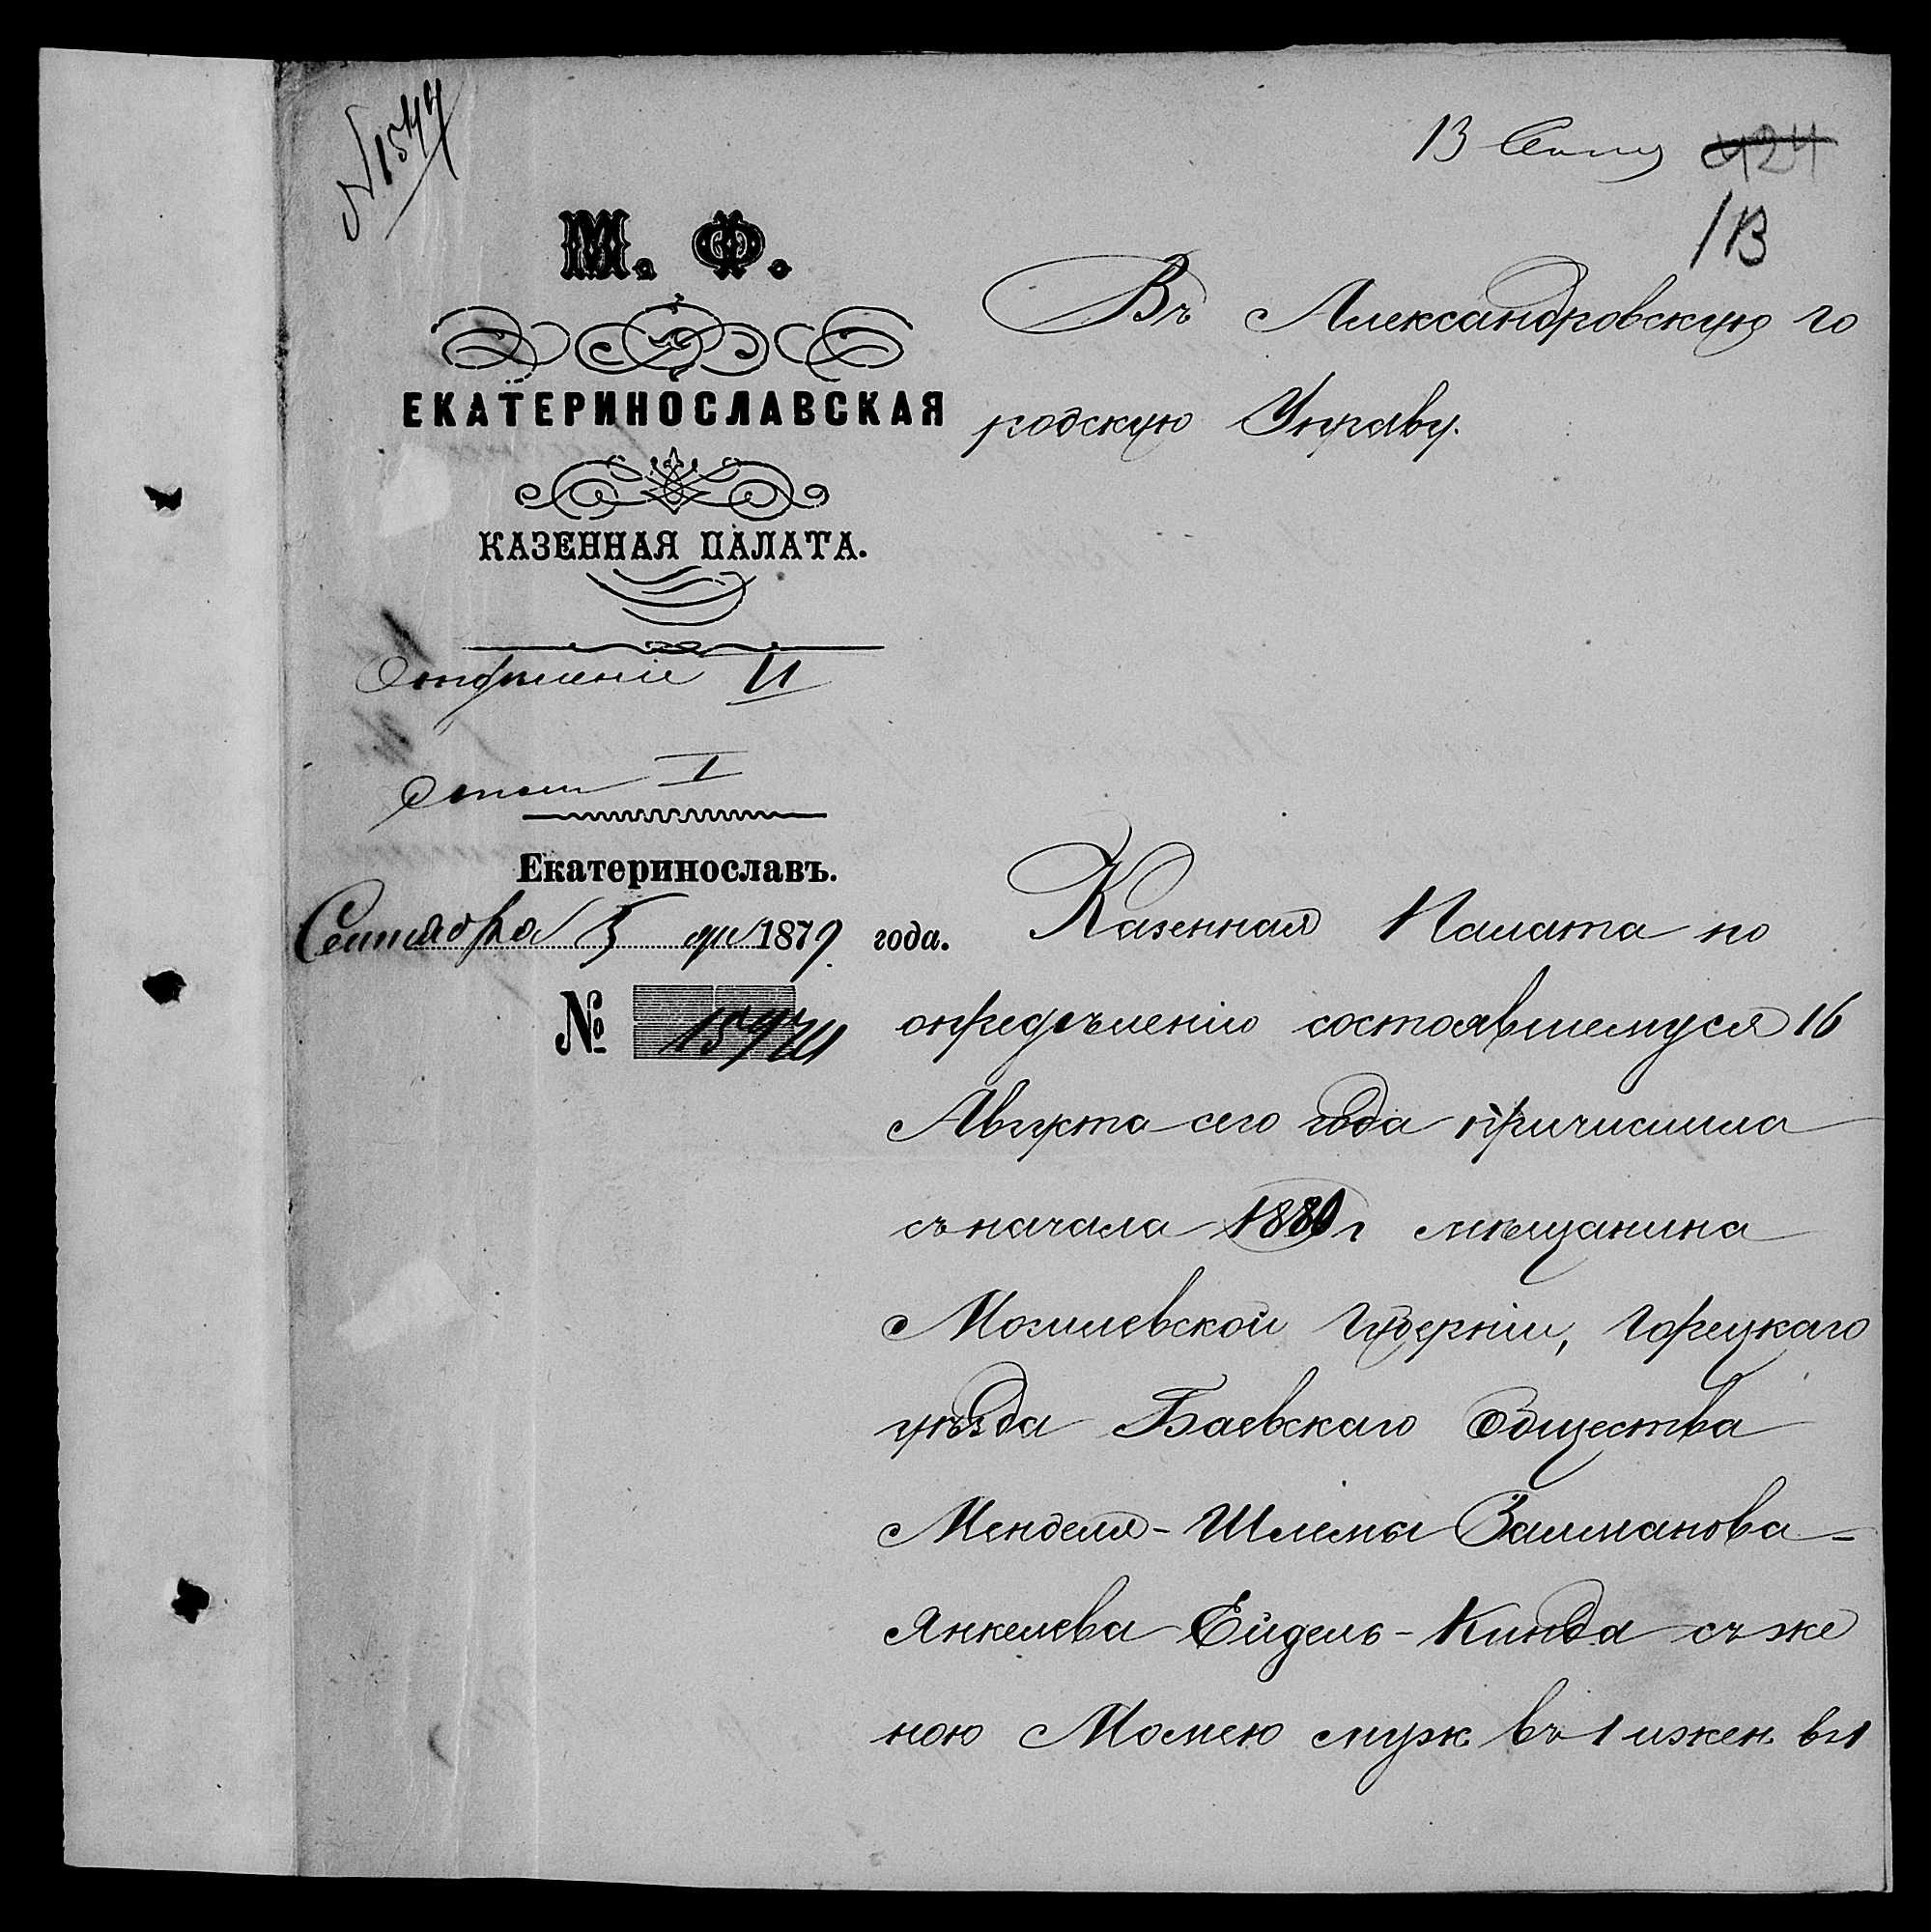 № 1577
13 Сент 424
113
М. Ф.
ЕКАТЕРИНОСЛАВСКАЯ
КАЗЕННАЯ ПАЛАТА.
Отдѣленіе II
Столъ I
Екатеринославъ.
Сентября 5 дня 1879 года.
№
Въ Александровскую го
родскую Управу.
Казенная Палата по
опредѣленію состоявшемуся 16
Августа сего года причислила
съ начала 1880 г мѣщанина
Могилевской Губерніи, Горецкаго
уѣзда Баевскаго Общества
Менделя-Шлемы Залманова-
Янкелева Ейдель-Кинда съ же
ною муж въ 1 и жен въ 1